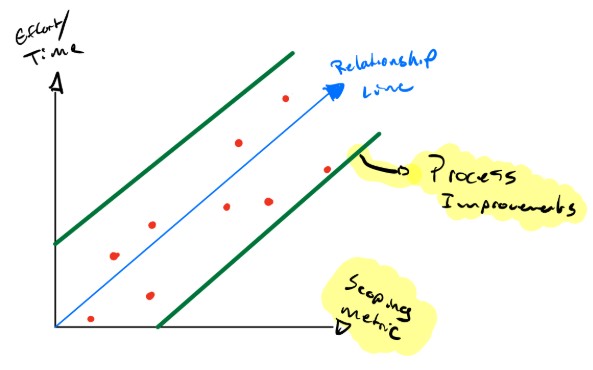 Effort/
Time
Relationship
Line
Process
Improvements
Scoping
metric